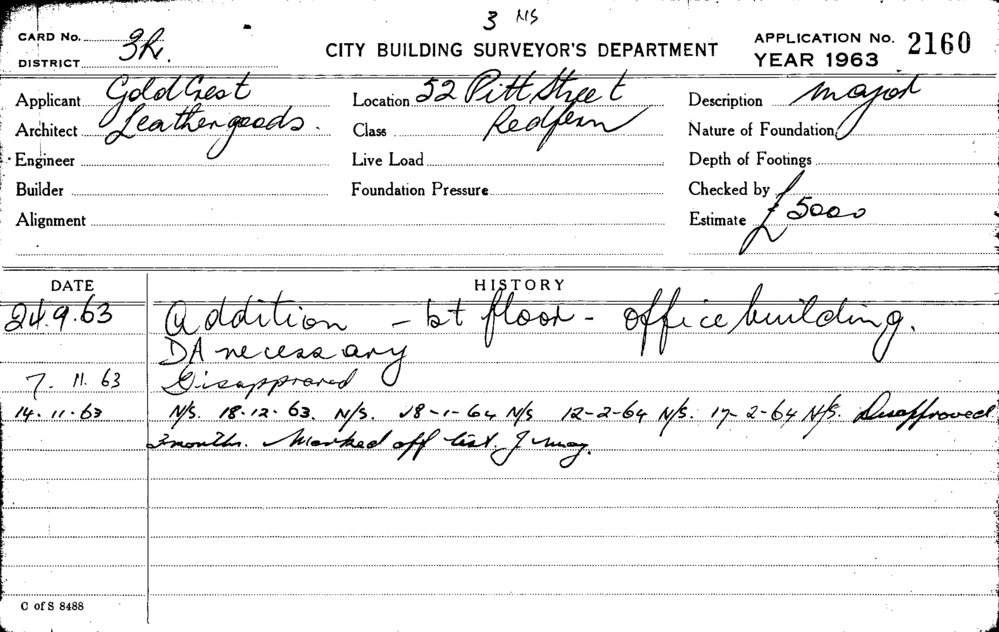 3 NS
CARD No. 3R.
DISTRICT
CITY BUILDING SURVEYOR'S DEPARTMENT
APPLICATION No. 2160
YEAR 1963
Applicant Gold Crest
Location 52 Pitt Street
Description major
Architect Leathergoods.
Class Redfern
Nature of Foundation
Engineer
Live Load
Depth of Footings
Builder
Foundation Pressure
Checked by
Alignment
Estimate £5000
DATE HISTORY
24.9.63 Addition - 1st floor - office building.
DA necessary
7. 11. 63 Disapproved
14-11-63 N/S. 18-12-63. N/S. 18-1-64 N/S 12-2-64 N/S. 17-2-64 N/S. Disapproved
3 months. Marked off list. J
C of S 8488